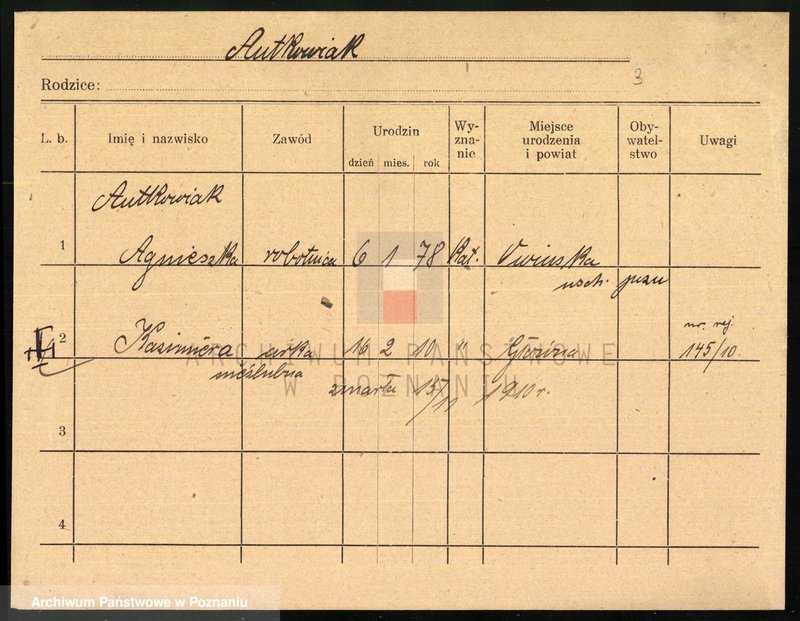 Antkowiak
Rodzice:
3
L. b. Imię i nazwisko Zawód Urodzin dzień mies. rok Wy-zna-nie Miejsce urodzenia i powiat Oby-watel-stwo Uwagi
Antkowiak
1 Agnieszka robotnica 6 1 78 Kat.
2 Kazimiera córka 16 2 10 " Główna nr. rej. 145/10.
nieślubna
zmarła 15/11 1910 r.
3
4
ARCHIWUM PAŃSTWOWE
W POZNANIU
Archiwum Państwowe w Poznaniu